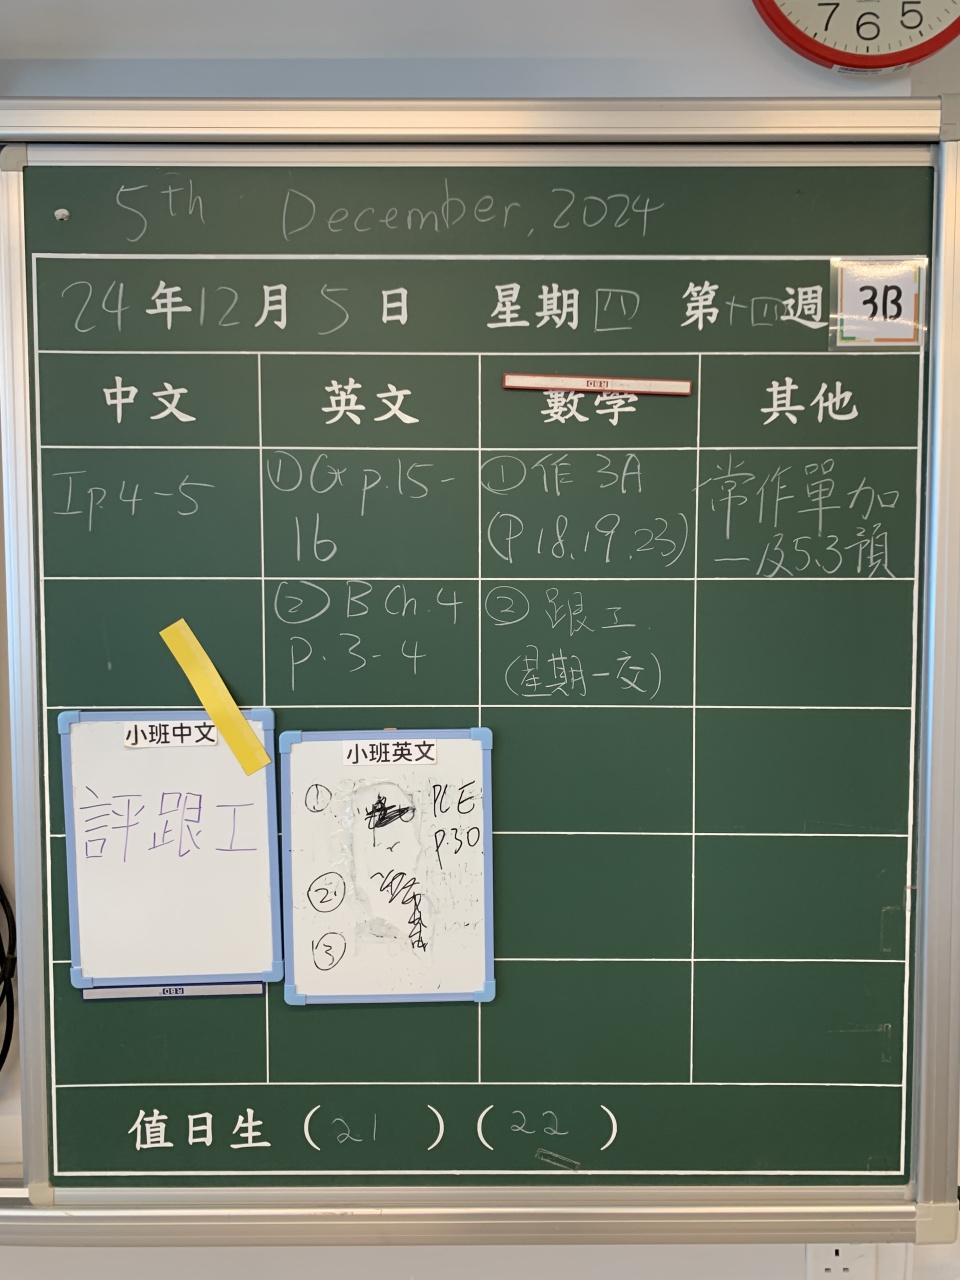 7 6 5
5th December, 2024
24年12月5日 星期四 第十四週 3B
中文 英文 數學 其他
Ip.4-5
① G* p.15-
16
① 作 3A
(P 18.19.23)
常作單加
一及5.3預
② B Ch.4
p.3-4
② 跟工
(星期一交)
小班中文
評跟工
小班英文
① PLE
p.30
②
③
值日生 (21) (22)